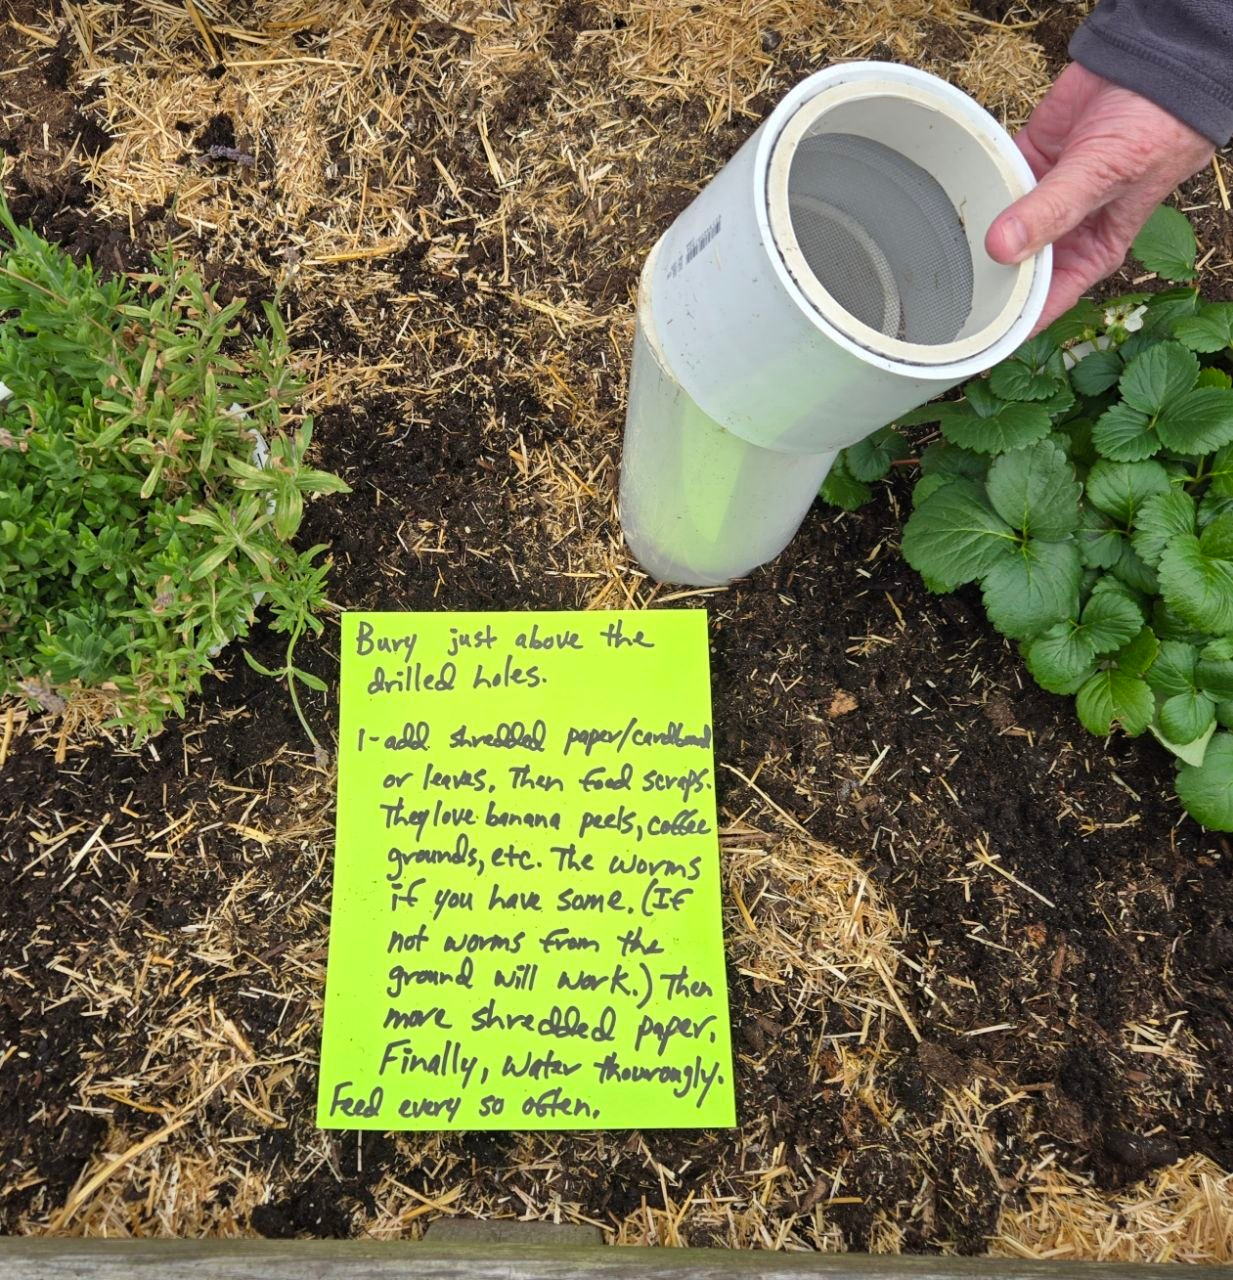 Bury just above the
drilled holes.
1-add shredded paper/cardboard
or leaves, Then food scraps.
They love banana peels, coffee
grounds, etc. The worms
if you have some. (If
not worms from the
ground will work.) Then
more shredded paper.
Finally, water thourongly.
Feed every so often.